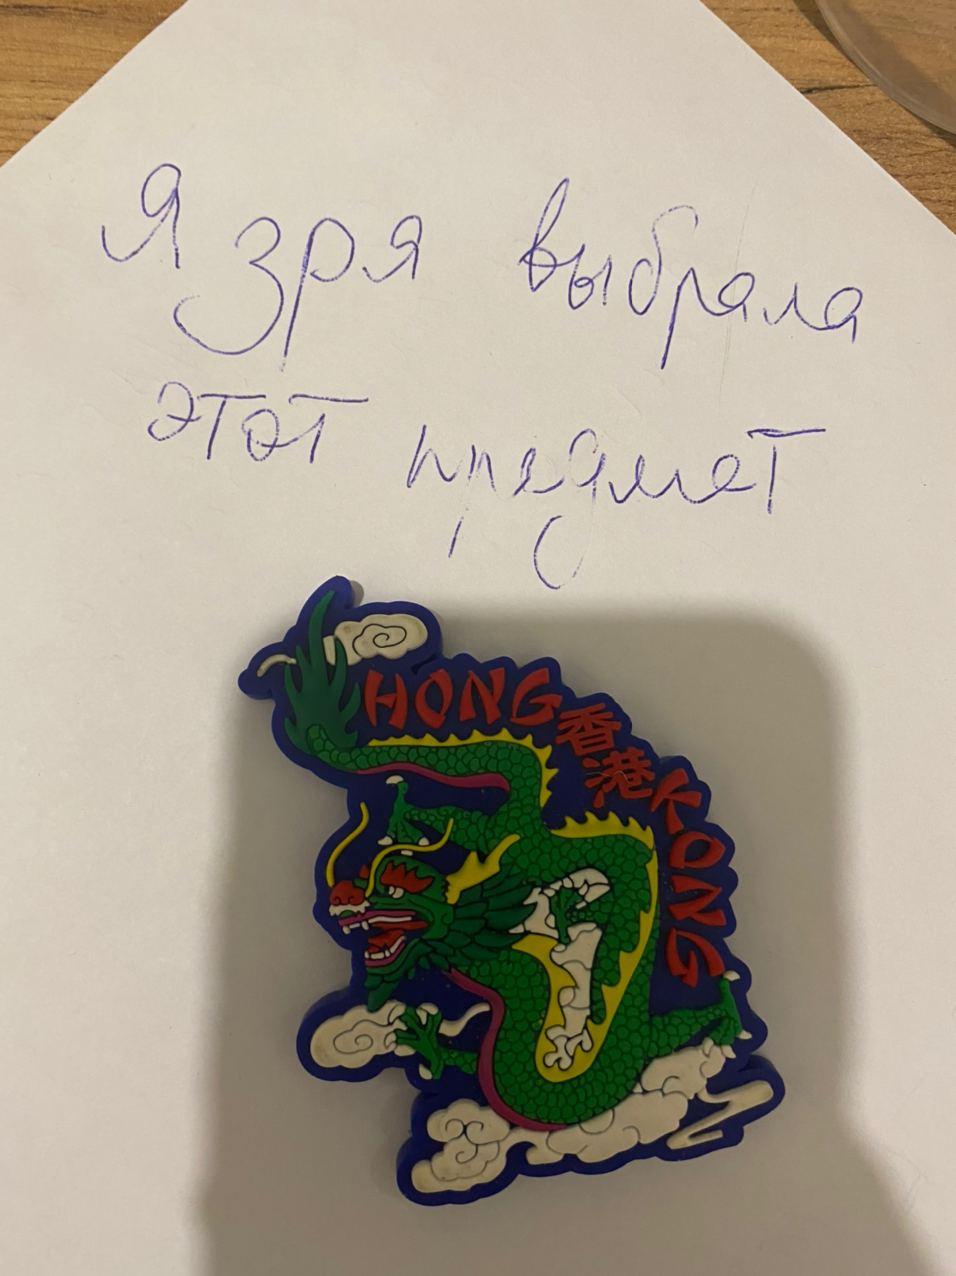 Я зря выбрала
этот предмет
HONG
香港
KONG